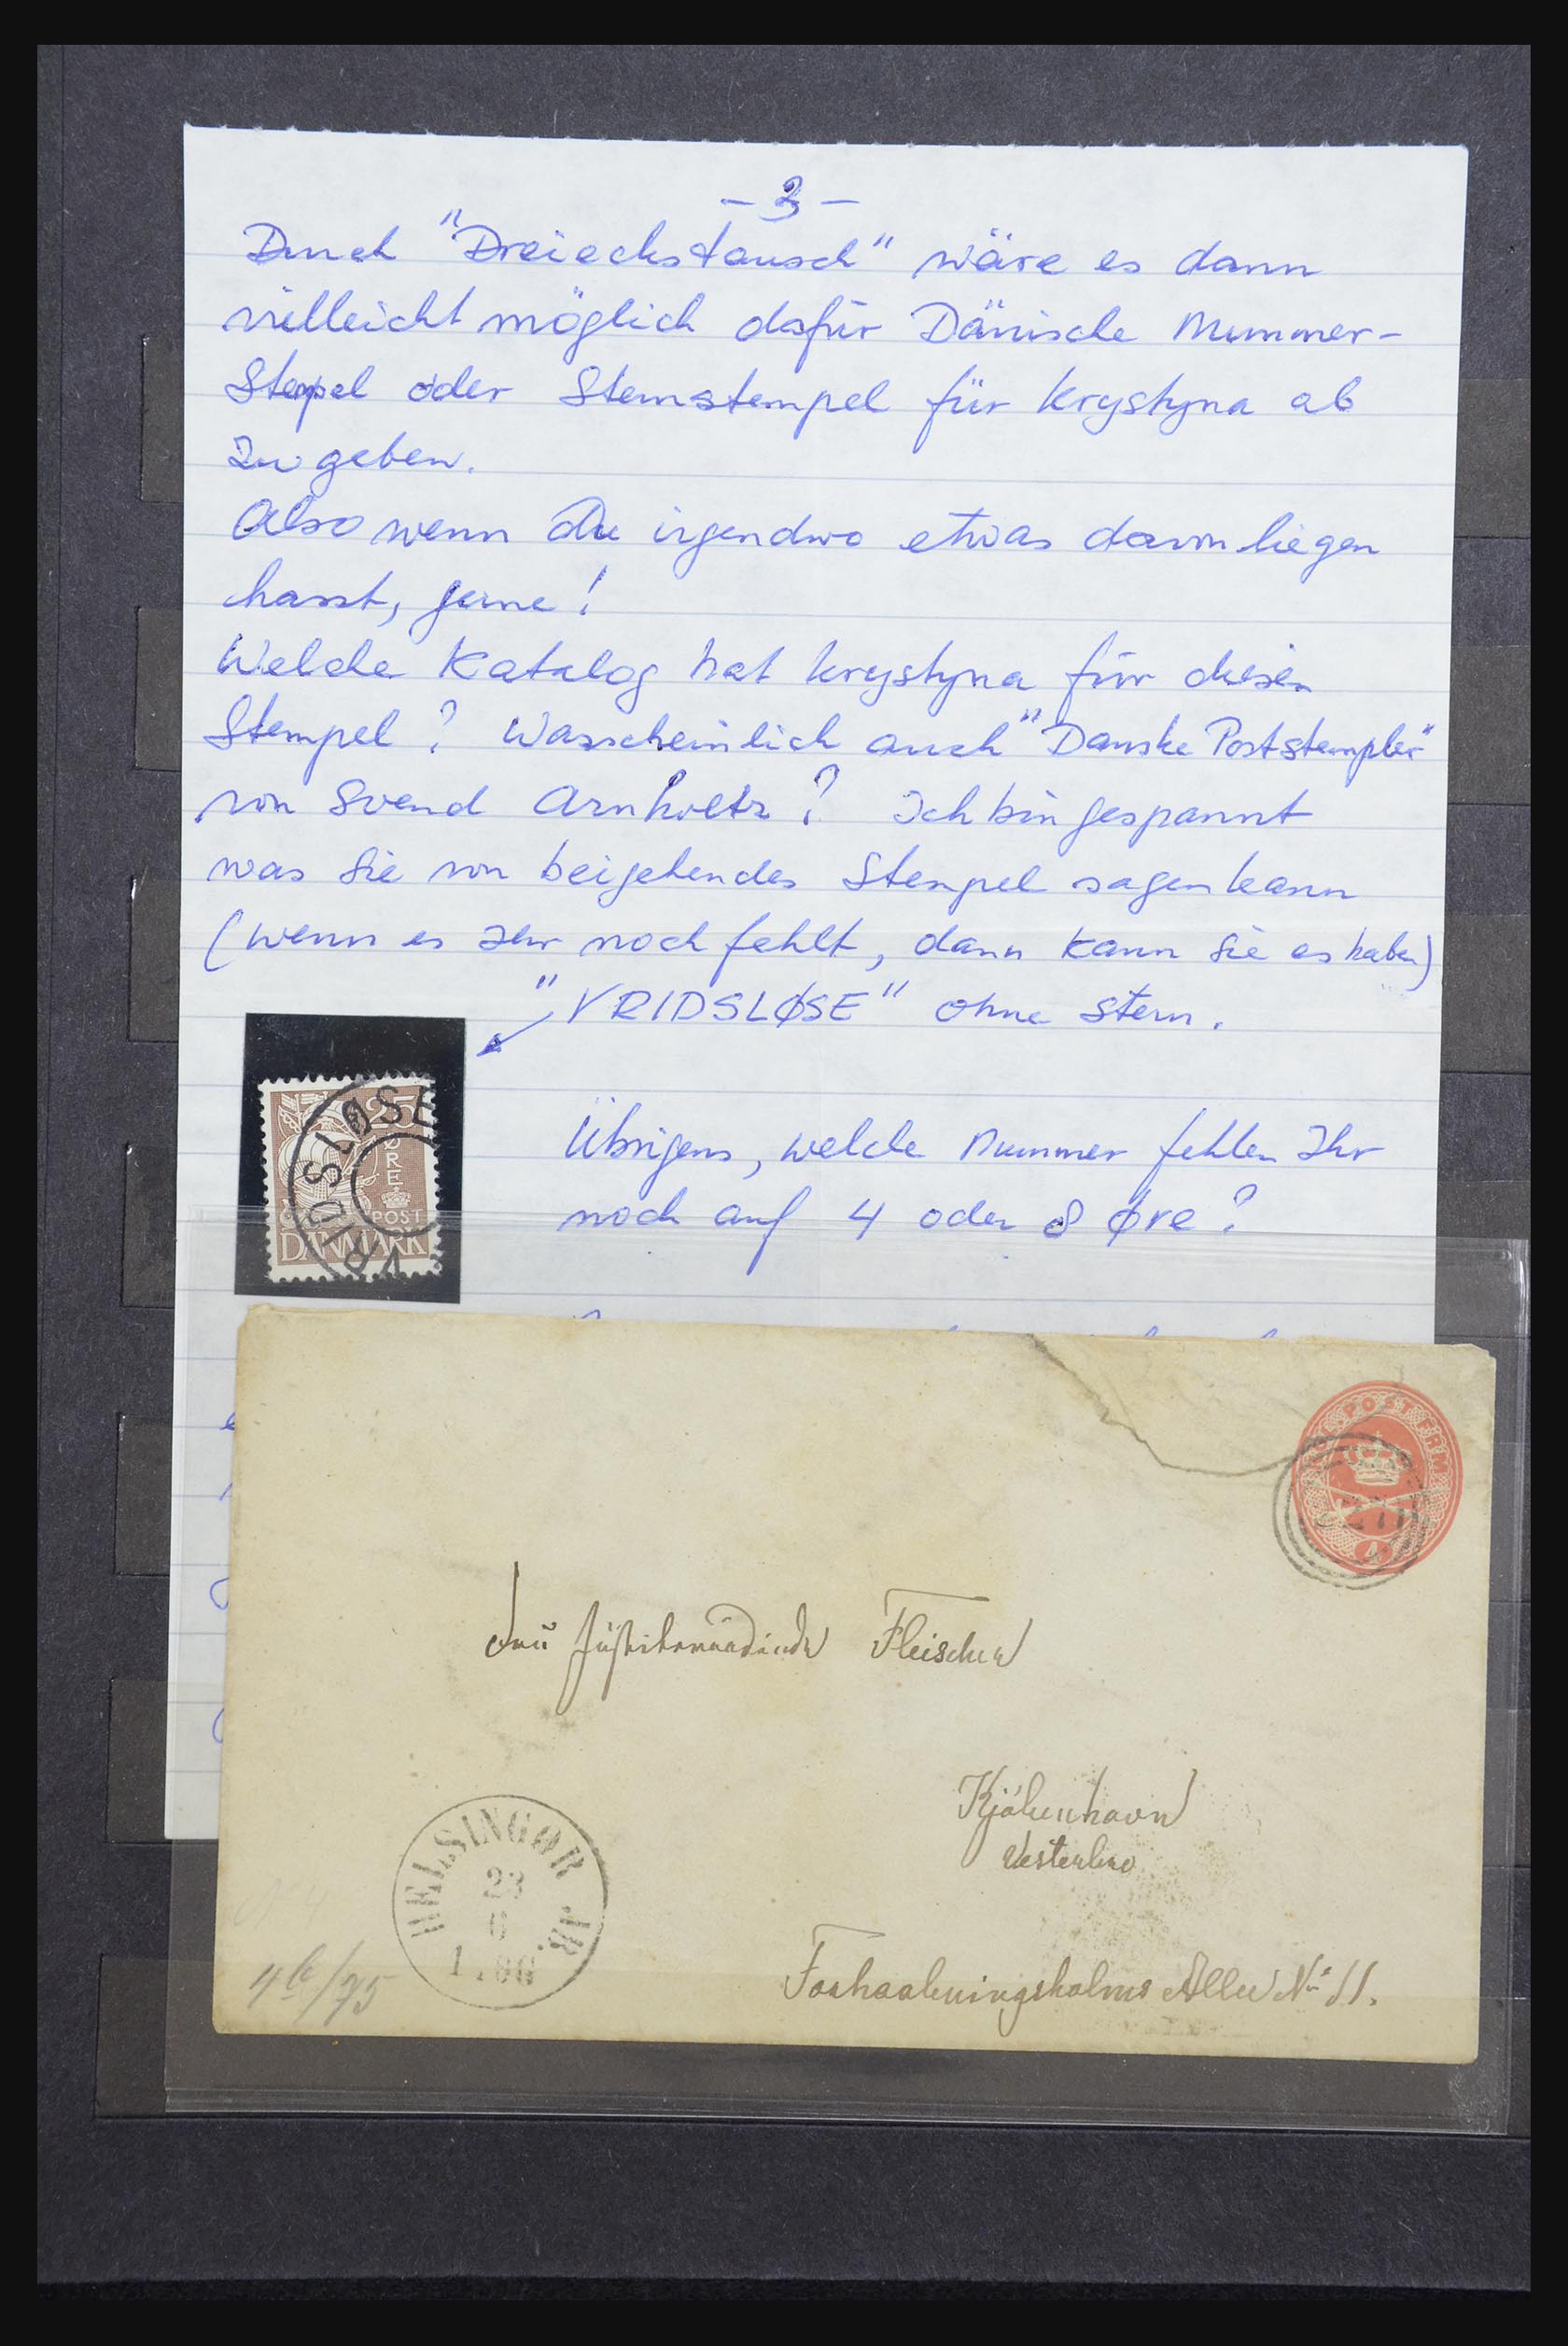 - 3 -
Durch "Dreieckstausch" wäre es dann
vielleicht möglich dafür Dänische Nummer-
Stempel oder Sternstempel für Krystyna ab
zu geben.
Also wenn Du irgendwo etwas davon liegen
hasst, gerne!
Welche Katalog hat Krystyna für diesen
Stempel? Wasscheinlich auch "Danske Poststempler"
von Svend Arnholtz? Ich bin gespannt
was Sie von beigehendes Stempel sagen kann
(wenn es Ihr noch fehlt, dann kann Sie es haben)
"VRIDSLØSE" ohne Stern.
VRIDSLØSE
25
ØRE
POST
DANMARK
Übrigens, welche Nummer fehlen Ihr
noch auf 4 oder 8 Øre?
KGL POST FRM
4
Fleischer
Kjöbenhavn
Vesterbro
HELSINGØR JB.
23
6
Forhaabningsholms Allee No 11.